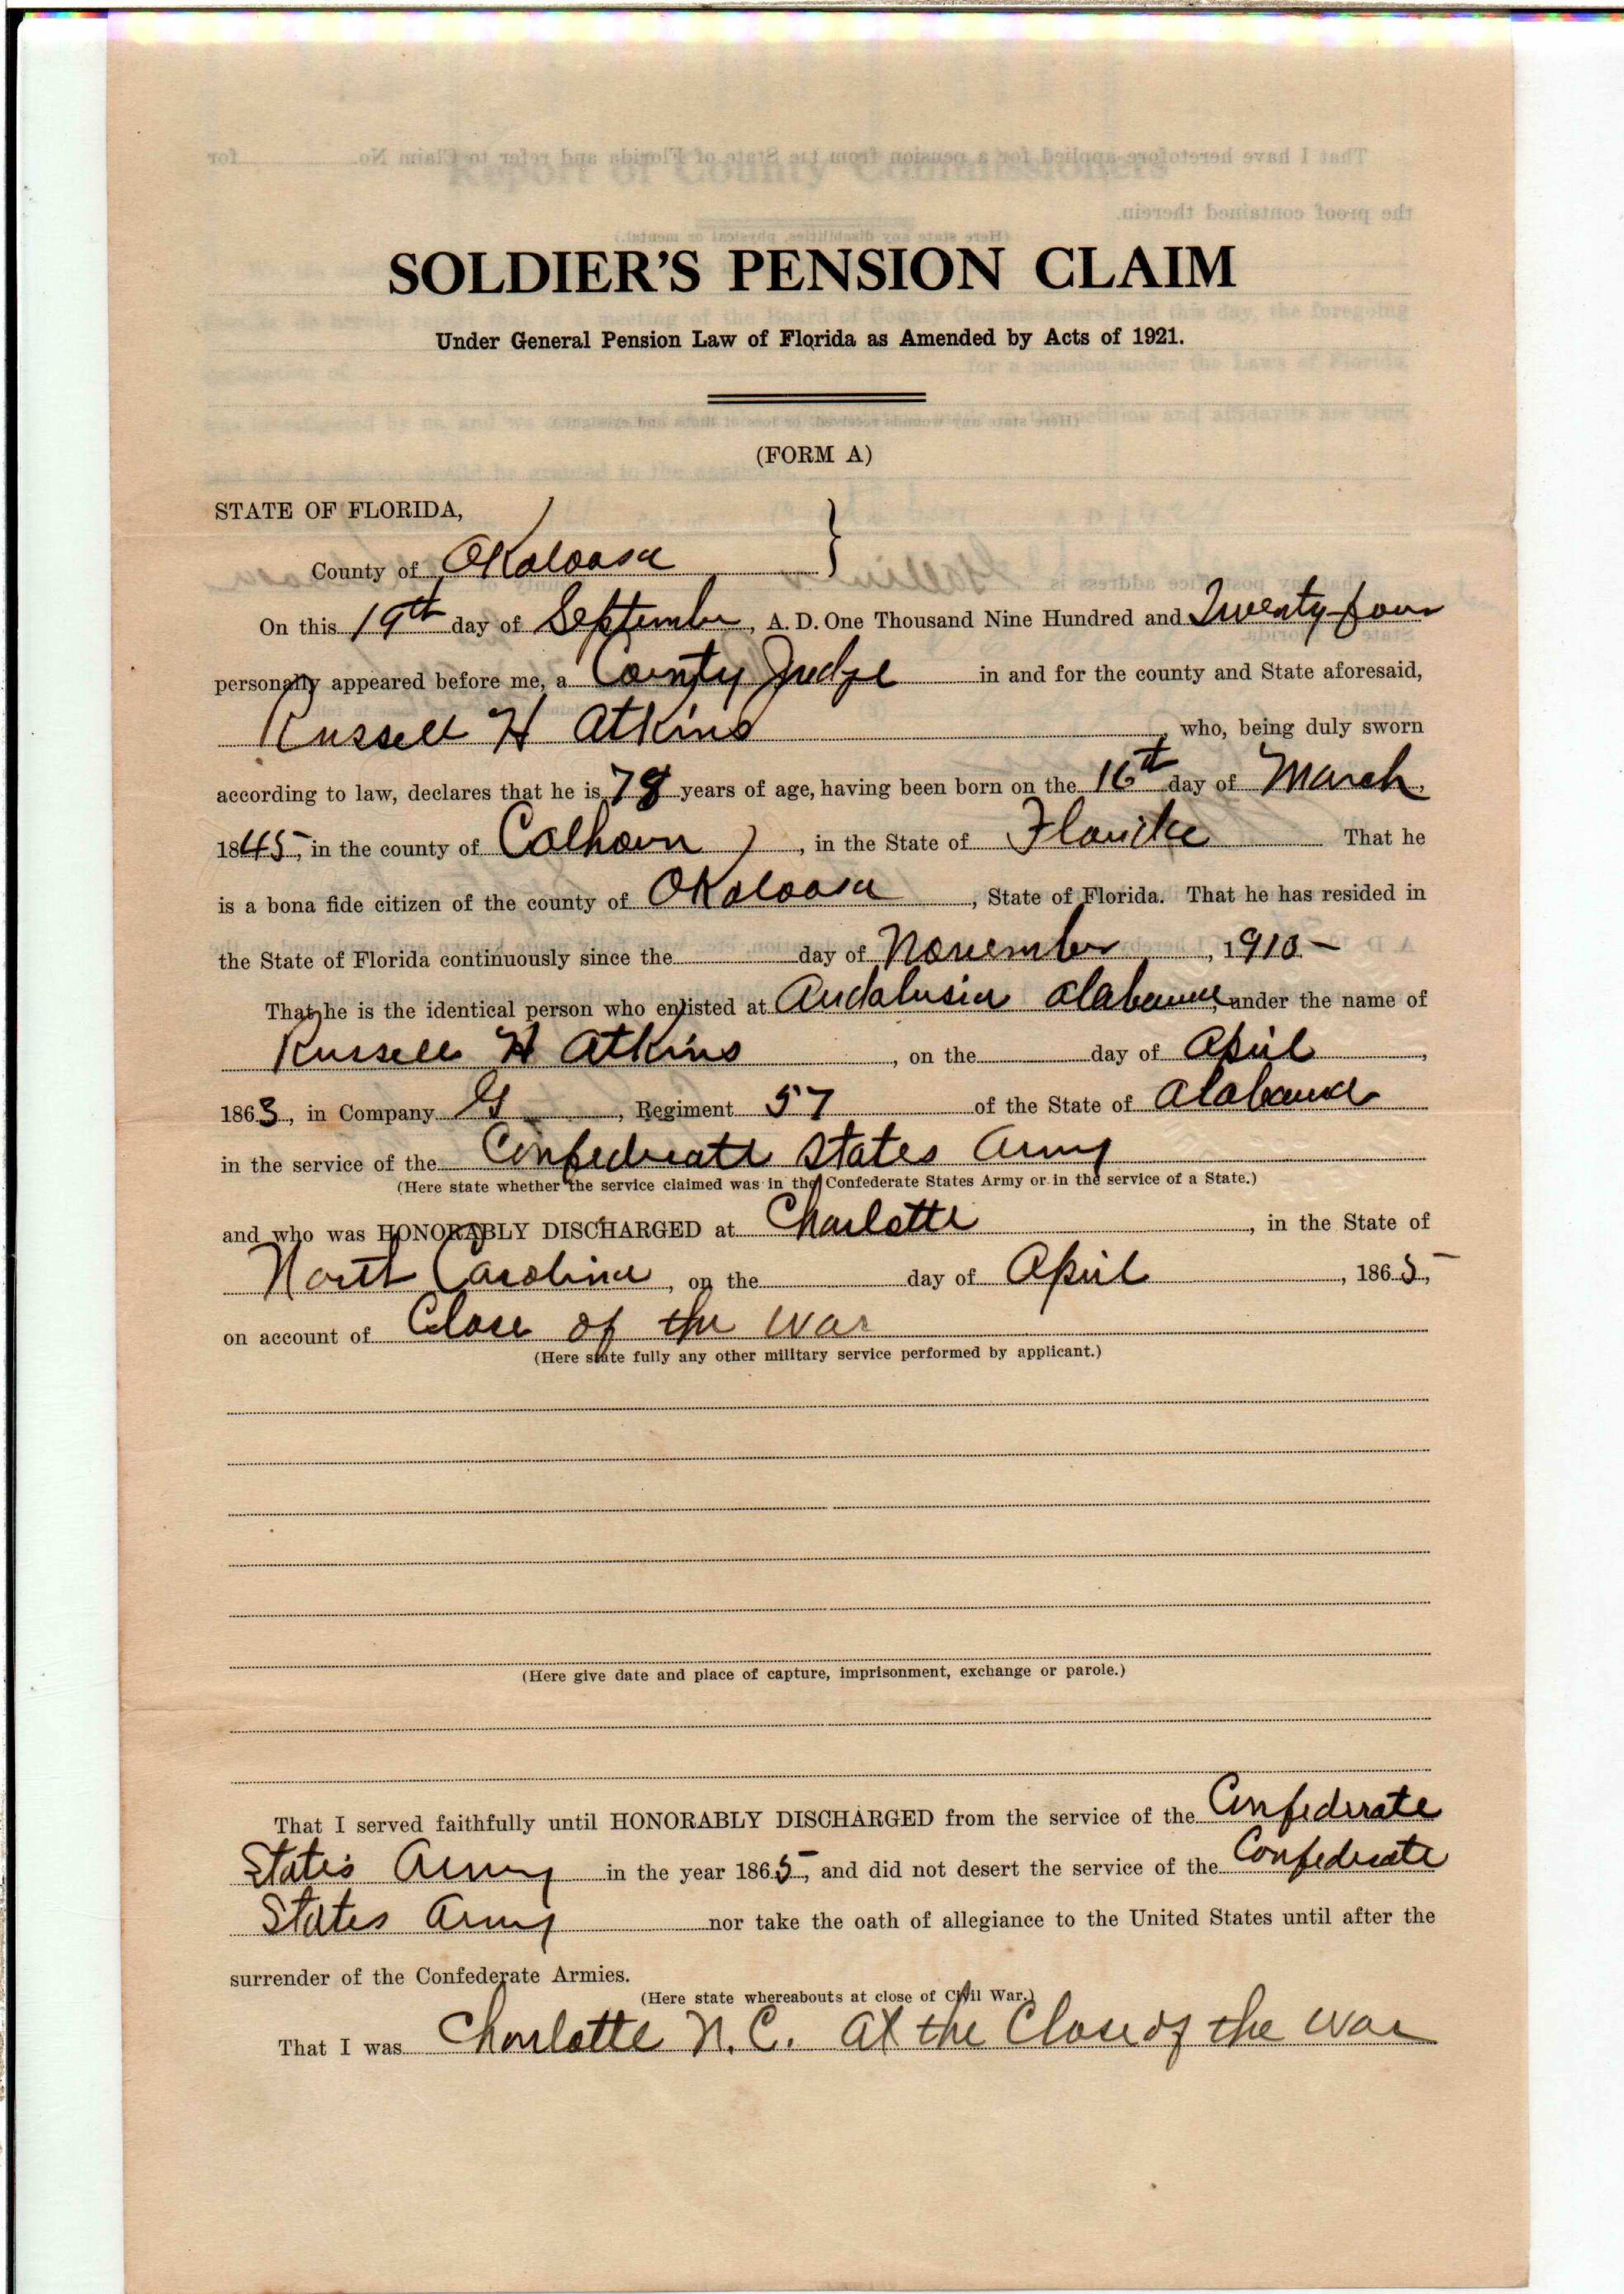 SOLDIER'S PENSION CLAIM
Under General Pension Law of Florida as Amended by Acts of 1921.
(FORM A)
STATE OF FLORIDA,
County of Okaloosa }
On this 19th day of September, A. D. One Thousand Nine Hundred and Twenty four
personally appeared before me, a County Judge in and for the county and State aforesaid,
Russell H Atkins, who, being duly sworn
according to law, declares that he is 78 years of age, having been born on the 16th day of March,
1845, in the county of Calhoun, in the State of Florida That he
is a bona fide citizen of the county of Okaloosa, State of Florida. That he has resided in
the State of Florida continuously since the day of November, 1910-
That he is the identical person who enlisted at Andalusia Alabama, under the name of
Russell H Atkins, on the day of April,
1863, in Company G, Regiment 57 of the State of Alabama
in the service of the Confederate States Army
(Here state whether the service claimed was in the Confederate States Army or in the service of a State.)
and who was HONORABLY DISCHARGED at Charlotte, in the State of
North Carolina, on the day of April, 1865,
on account of Close of the War
(Here state fully any other military service performed by applicant.)
(Here give date and place of capture, imprisonment, exchange or parole.)
That I served faithfully until HONORABLY DISCHARGED from the service of the Confederate
States Army in the year 1865, and did not desert the service of the Confederate
States Army nor take the oath of allegiance to the United States until after the
surrender of the Confederate Armies.
(Here state whereabouts at close of Civil War.)
That I was Charlotte N.C. at the Close of the War